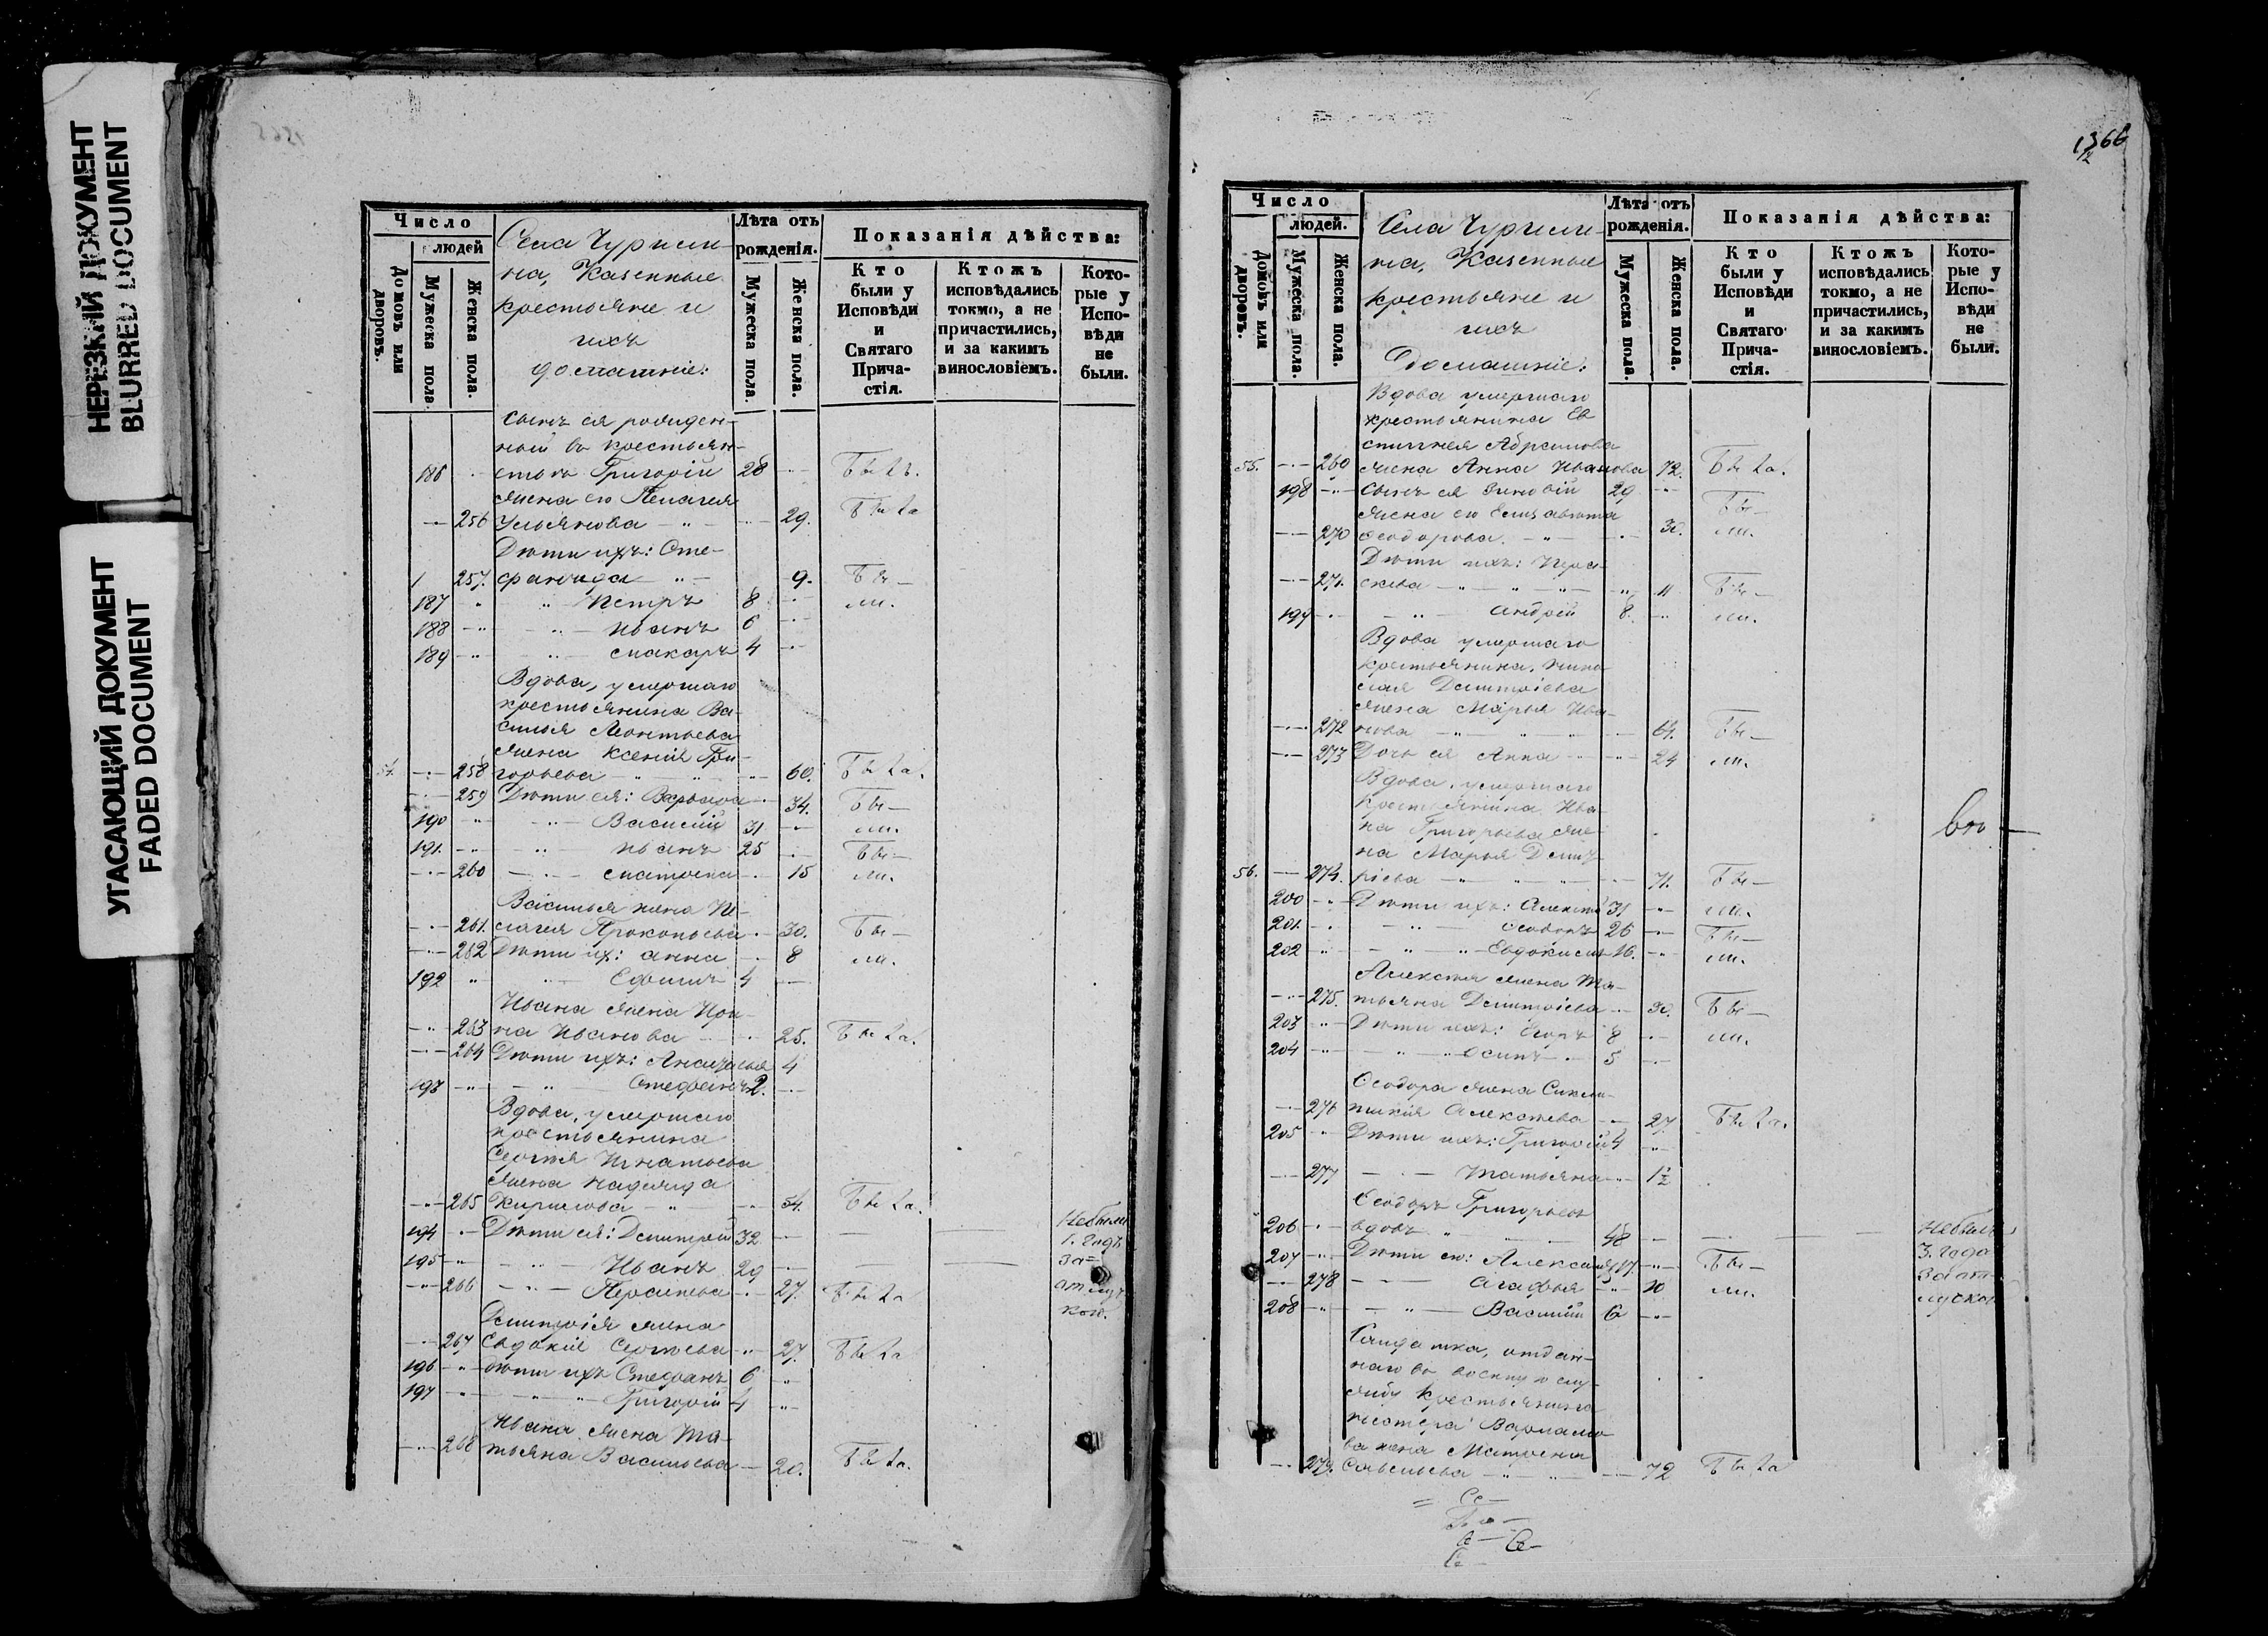 НЕРЕЗКИЙ ДОКУМЕНТ
BLURRED DOCUMENT
УГАСАЮЩИЙ ДОКУМЕНТ
FADED DOCUMENT
Число
людей
Домовъ или дворовъ.
Мужеска пола.
Женска пола.
Села Чурили-
на, Казенные
крестьяне и
ихъ
домашніе:
Лѣта отъ
рожденія.
Мужеска пола.
Женска пола.
Показанія дѣйства:
Кто
были у
Исповѣди
и
Святаго
Прича-
стія.
Ктожъ
исповѣдались
токмо, а не
причастились,
и за какимъ
винословіемъ.
Кото-
рые у
Испо-
вѣди
не
были.
Сынъ ея рожден-
ный въ крестьян-
186 ствѣ Григорій 28
жена его Пелагея
256 Ульянова 29.
Дѣти ихъ: Сте-
257. фанида 9.
187 Петръ 8
188 Иванъ 6
189 Макаръ 4
Вдова, умершаго
крестьянина Ва-
силья Леонтьева
жена Ксенія Гри-
258 горьева 60.
259 Дѣти ея: Варвара 34.
190 Василій 31
191. Иванъ 25
260 Матрена 15
Василья жена Пе-
261. лагея Прокопьева 30.
262 Дѣти их: Анна 8
192 Ефимъ 4
Ивана жена Ири-
263 на Иванова 25.
264 Дѣти ихъ: Анисья 4
193 Стефанъ 2.
Вдова, умершаго
крестьянина
Сергѣя Игнатьева
жена Надежда
265 Кирилова 54.
194 Дѣти ея: Димитрій 32 Небыли
1. годъ
195 Иванъ 29 за
266 Парасковья 27. отлуч
кою.
Димитрія жена
267 Евдокія Сергѣева 27.
196 Дѣти ихъ Стефанъ 6
197 Григорій 4
Ивана жена Та-
268 тьяна Васильева 20.
1366
Число
людей.
Домовъ или дворовъ.
Мужеска пола.
Женска пола.
Села Чурили-
на, Казенные
крестьяне и
ихъ
домашніе:
Лѣта отъ
рожденія.
Мужеска пола.
Женска пола.
Показанія дѣйства:
Кто
были у
Исповѣди
и
Святаго
Прича-
стія.
Ктожъ
исповѣдались
токмо, а не
причастились,
и за какимъ
винословіемъ.
Кото-
рые у
Испо-
вѣди
не
были.
Вдова умершаго
крестьянина Ев
стигнея Абрамова
55. 260 жена Анна Иванова 72.
198 Сынъ ея Зиновій 29
жена его Елизавета
270 Ѳеодорова 30.
Дѣти ихъ: Пара-
271. скева 11
199 Андрей 8.
Вдова умершаго
крестьянина, Нико
лая Димитріева
жена Марья Ива-
272 нова 64.
273 Дочь ея Анна 24
Вдова, умершаго
крестьянина Ива-
на Григорьева же-
на Марья Димит
56. 274. ріева 71.
200 Дѣти ихъ: Алексѣй 31
201. Ѳеодоръ 26
202 Евдокимъ 16.
Алексѣя жена Та-
275. тьяна Димитріева 30.
203 Дѣти ихъ: Егоръ 8
204 Осипъ 5
Ѳеодора жена Сикли-
276 тикія Алексѣева 27
205 Дѣти ихъ: Григорій 4
277 Татьяна 1½
Ѳеодоръ Григорьевъ
206 вдовъ 48 Небылъ
207 Дѣти его: Александръ 17. 3. года
278 Агафья 10 за от
208 Василій 6 лучкою
Солдатка, отдан-
наго въ военную слу-
жбу крестьянина
Нестера Варламо
ва жена Матрена
279. Савельева 72